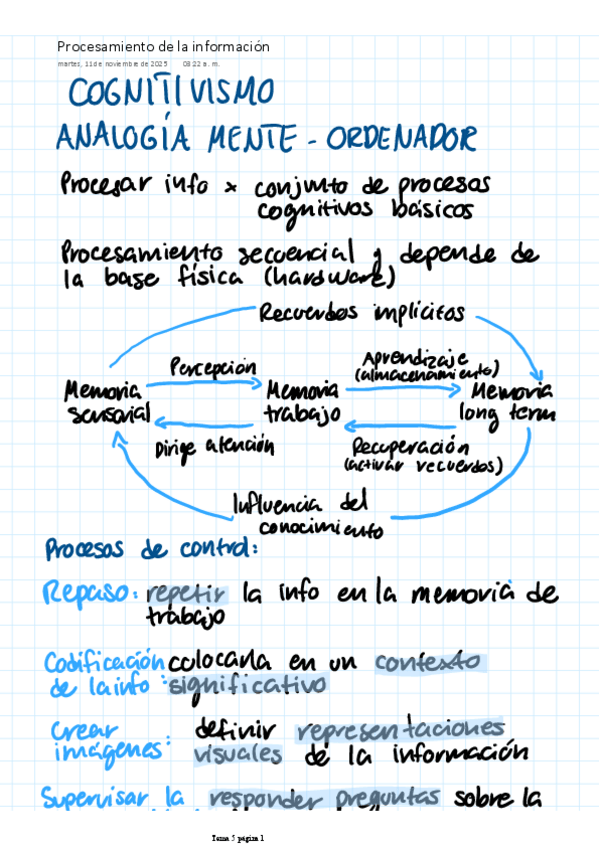 Procesamiento de la información
martes, 11 de noviembre de 2025 08:22 a. m.
COGNITIVISMO
ANALOGÍA MENTE - ORDENADOR
Procesar info x conjunto de procesos
cognitivos básicos
Procesamiento secuencial y depende de
la base física (hardware)
Recuerdos implícitos
Percepción
Aprendizaje
(almacenamiento)
Memoria
sensorial
Memoria
trabajo
Memoria
long term
Dirige atención
Recuperación
(activar recuerdos)
Influencia del
conocimiento
Procesos de control:
Repaso: repetir la info en la memoria de
trabajo
Codificación colocarla en un contexto
de la info: significativo
Crear definir representaciones
imágenes: visuales de la información
Supervisar la responder preguntas sobre la
Tema 5 página 1